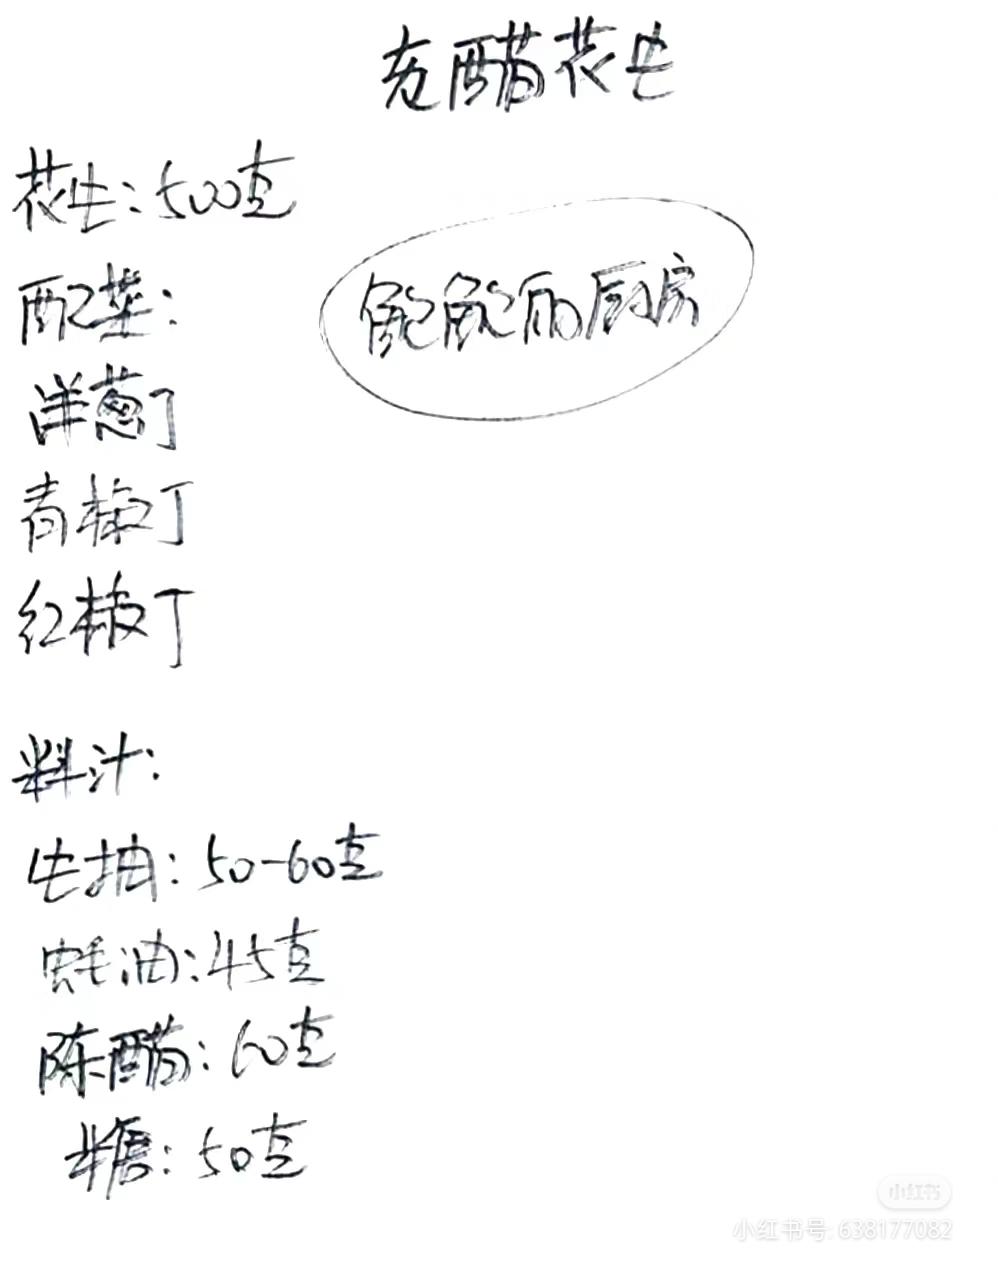 老醋花生
花生：500克
厨房
配菜：
洋葱丁
青椒丁
红椒丁
料汁：
生抽：50-60克
蚝油：45克
陈醋：60克
糖：50克
小红书
小红书号: 638177082